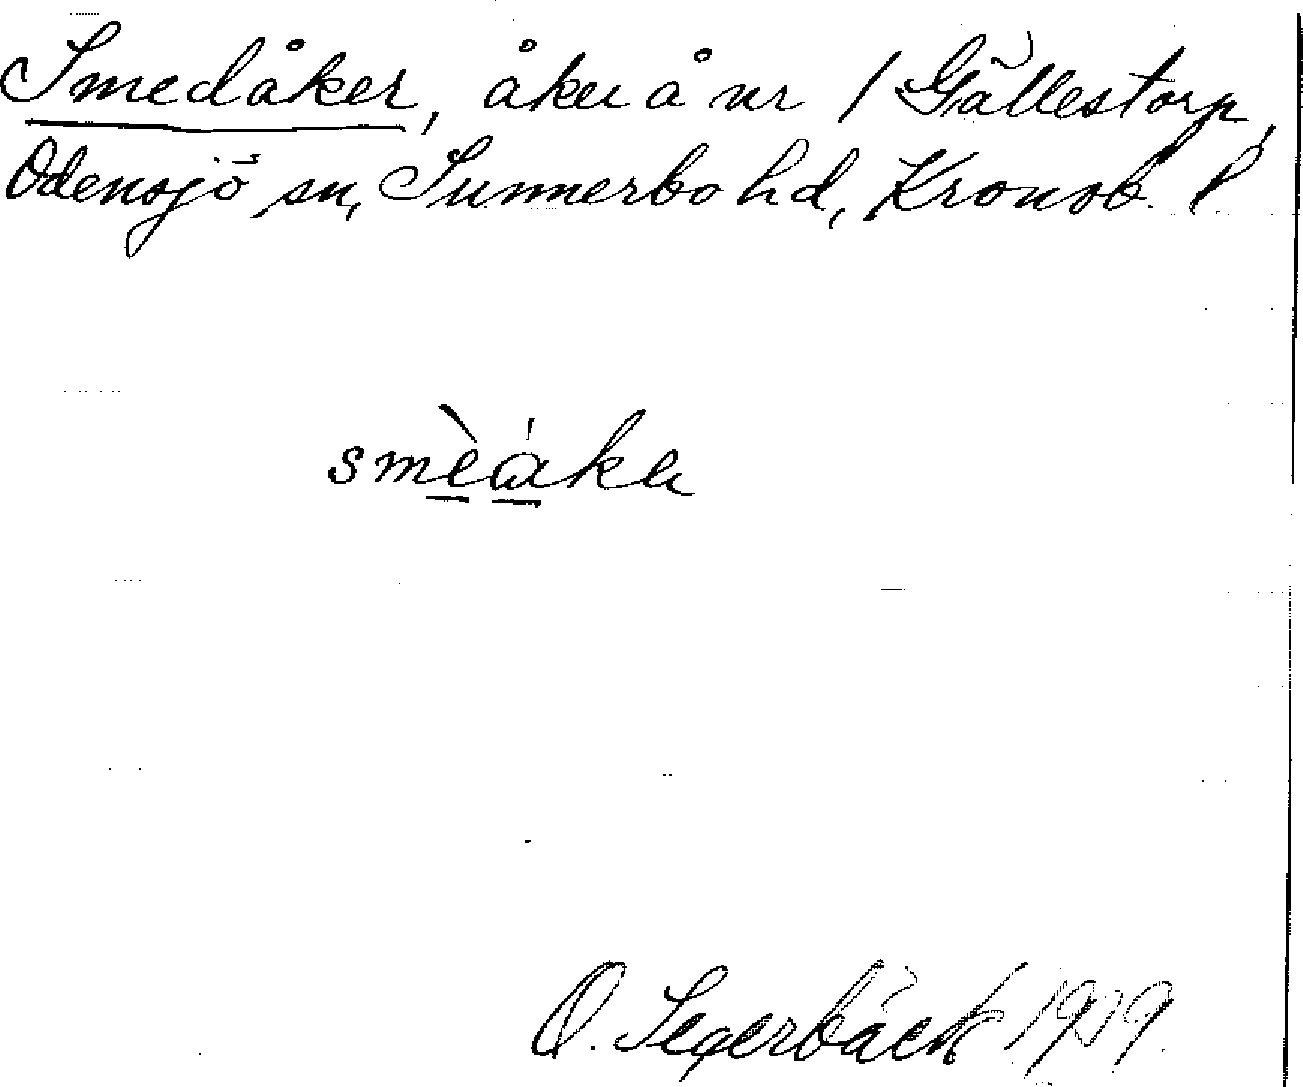 Smedåker, åker å nr 1 Gällestorp,
Odensjö sn, Sunnerbo hd, Kronob. l.
smèáka
O. Segerbäck 1919.